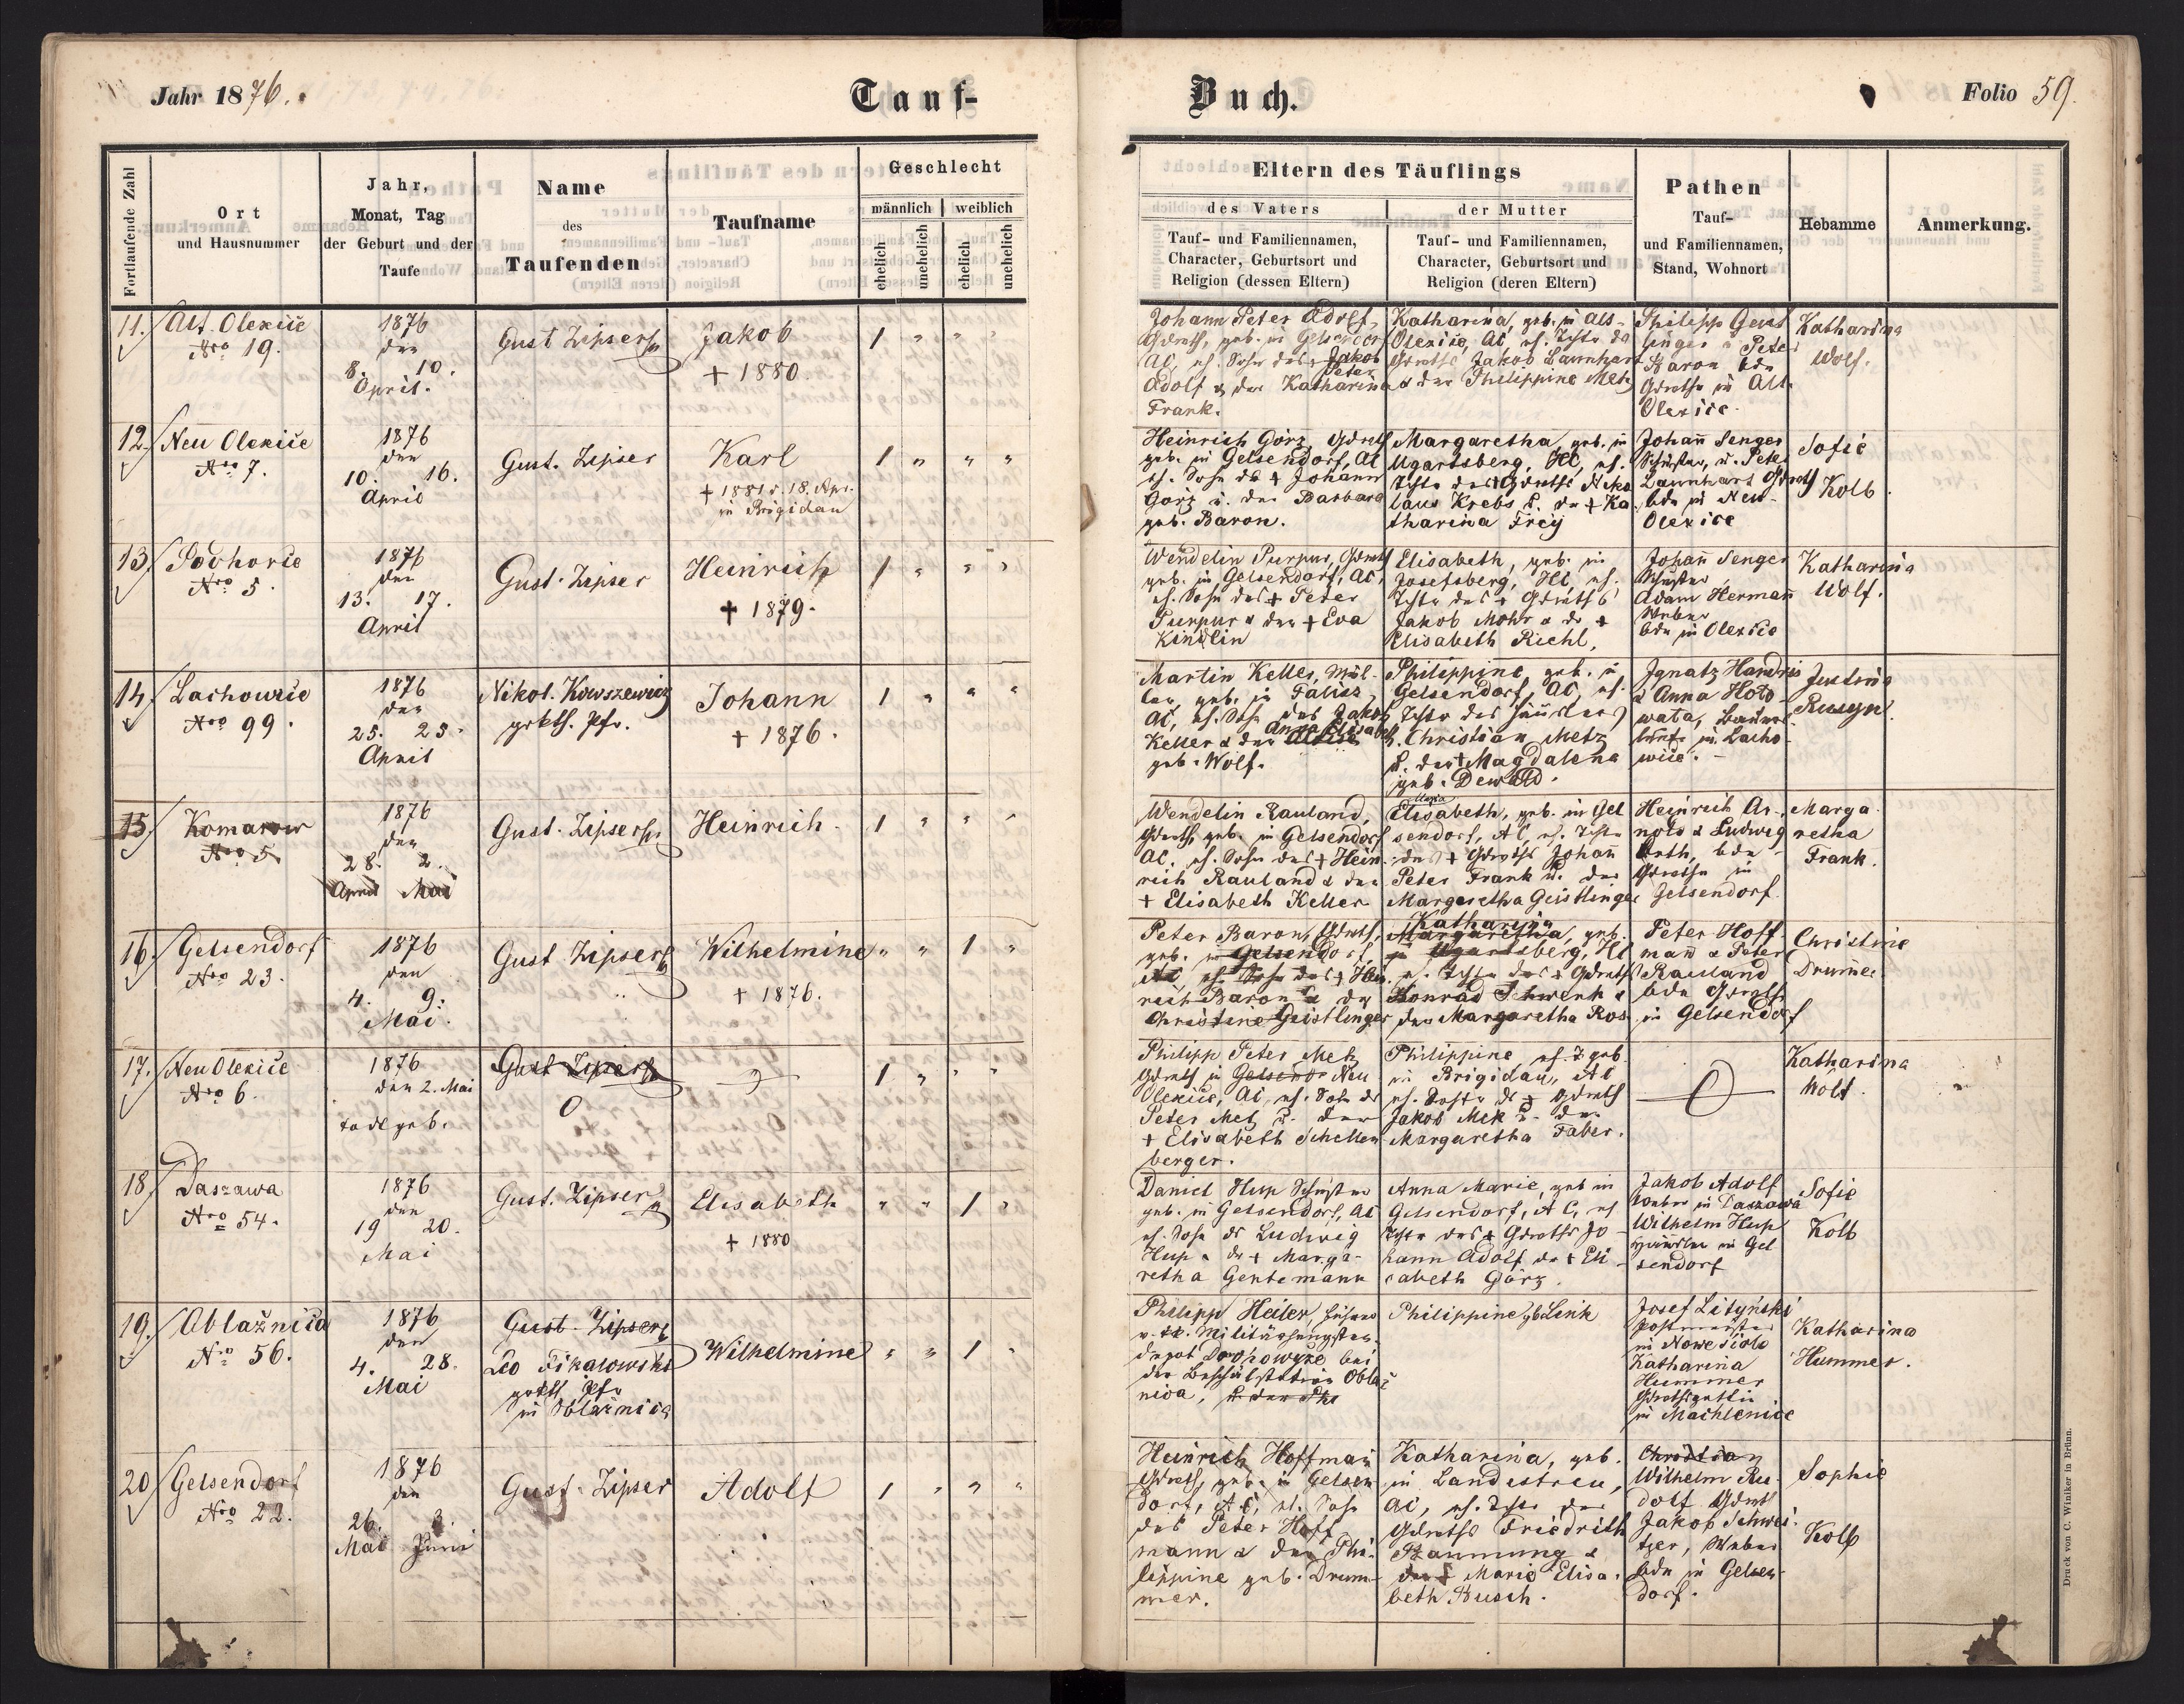 Jahr 1876.
Tauf-
Buch.
Folio 59.
Fortlaufende Zahl
Ort
und Hausnummer
Jahr,
Monat, Tag
der Geburt und der
Taufe
Name
des
Taufenden
Taufname
Geschlecht
männlich
weiblich
ehelich
unehelich
ehelich
unehelich
Eltern des Täuflings
des Vaters
Tauf- und Familiennamen,
Character, Geburtsort und
Religion (dessen Eltern)
der Mutter
Tauf- und Familiennamen,
Character, Geburtsort und
Religion (deren Eltern)
Pathen
Tauf-
und Familiennamen,
Stand, Wohnort
Hebamme
Anmerkung.
11.
Alt. Olexice
Nro 19.
1876
den
8. 10.
April.
Gust Zipser
Jakob
+ 1880.
1 " " "
Johann Peter Adolf,
Gdrth, geb. in Gelsendorf
AC, eh. Sohn des Jakob
Peter
Adolf & der Katharina
Frank.
Katharina, geb. in Alt-
Olexice, AC, eh. Tchtr des
Gdrths Jakob Launhart
& der Philippine Metz
Philipp Geist
linger & Peter
Baron bde
Gdrthe in Alt
Olexice.
Katharina
Wolf.
12.
Neu Olexice
Nro 7.
1876
den
10. 16.
April
Gust. Zipser
Karl
+ 1881 d. 18. Apr.
in Brigidau
1 " " "
Heinrich Görz, Gdrth
geb. in Gelsendorf, AC
eh. Sohn des + Johann
Görz u. der Barbara
geb. Baron.
Margaretha, geb. in
Ugartsberg, HC, eh.
Tchtr des + Gdrths Niko
laus Krebs u. der + Ka
tharina Frey
Johan̄ Senger
Schuster, u. Peter
Launhart Gdrth
bde in Neu-
Olexice
Sofie
Kolb.
13.
Podhorce
Nro 5.
1876
den
13. 17.
April
Gust. Zipser
Heinrich
+ 1879.
1 " " "
Wendelin Purpur, Gdrth
geb. in Gelsendorf, AC,
eh. Sohn des + Peter
Purpur & der + Eva
Kindlin
Elisabeth, geb. in
Josefsberg, HC, eh.
Tchtr des + Gdrths
Jakob Mohr & der +
Elisabeth Riehl.
Johan̄ Senger
Schuster,
Adam Herman̄
Weber
bde in Olexice
Katharina
Wolf.
14.
Lachowice
Nro 99.
1876
den
25. 25.
April
Nikol. Kowszewicz
grkth. Pfr.
Johann
+ 1876.
1 " " "
Martin Keller, Mül-
ler geb. in Falisz,
AC, eh. Sohn des Jakob
Anna Elisabeth
Keller & der
geb. Wolf.
Philippine geb. in
Gelsendorf, AC, eh.
Tchtr des
Christian Metz
u. der + Magdalena
geb. Dewald.
Ignatz Handris
& Anna Hoto
wata, Bauers
leute in Lacho-
wice.
Justina
Rusyn.
15.
Komarow
Nro 5.
1876
den
28. 2.
April Mai
Gust. Zipser
Heinrich.
1 " " "
Wendelin Rauland,
Gdrth, geb. in Gelsendorf
AC, eh. Sohn des + Hein-
rich Rauland & der
+ Elisabeth Keller
Elisabeth, geb. in Gel
sendorf, AC, eh. Tchtr
des + Gdrths Johan̄
Peter Frank u. der
Margaretha Geistlinger
Heinrich Ar-
nold & Ludwig
Orth, bde
Gdrthe in
Gelsendorf.
Marga
retha
Frank.
16.
Gelsendorf
Nro 23.
1876
den
4. 9.
Mai.
Gust Zipser
Wilhelmine
+ 1876.
" " 1 "
Peter Baron, Gdrth,
geb. in Gelsendorf,
AC, eh. Sohn des + Hein
rich Baron & der
Christine Geistlinger
Katharina
Margaretha, geb.
in Ugartsberg, HC
eh. Tchtr des + Gdrths
Konrad Schwenk &
der Margaretha Ros
Peter Hoff
man̄ & Peter
Rauland
bde Gdrthe
in Gelsendorf
Christine
Drum̄er
17.
Neu Olexice
Nro 6.
1876
den 2. Mai
todtgeb.
Gust Zipser
1 " " "
Philipp Peter Metz
Gdrth in Gelsendo Neu
Olexice, AC, eh. Sohn des
Peter Metz u. der
+ Elisabeth Schellen
berger.
Philippine, geb.
in Brigidau, AC
eh. Tochtr des + Gdrths
Jakob Mek u. der
Margaretha Faber.
Katharina
Wolf.
18.
Daszawa
Nro 54.
1876
den
19 20.
Mai
Gust. Zipser
Elisabeth
+ 1880
" " 1 "
Daniel Hup Schuster
geb. in Gelsendorf, AC
eh. Sohn des Ludwig
Hup & der + Marga-
retha Gentemann
Anna Marie, geb in
Gelsendorf, AC, eh
Tchtr des + Gdrths Jo-
hann Adolf & der + Eli-
sabeth Görz.
Jakob Adolf
Weber in Daszawa
Wilhelm Hup
Häusler in Gel
sendorf
Sofie
Kolb
19.
Oblaźnica
Nro 56.
1876
den
4. 28.
Mai
Gust. Zipser
Leo Fikalowski
grkth Pfr
in Oblaźnica
Wilhelmine
" " 1 "
Philipp Heiler,
v. kk. Militärhengsten-
depot Drohowyże bei
der Beschälstation Obłaź
nica, u. der Phi
Philippine, gb Link
Josef Lityński
Postmeister
in Nowe Sioło
Katharina
Hummer
Gdrthsgattin
in Machlenice
Katharina
Hummer.
20
Gelsendorf
Nro 22.
1876
den
26. 3.
Mai Juni
Gust. Zipser
Adolf
1 " " "
Heinrich Hoffman̄
Gdrth, geb. in Gelsen
dorf, AC, eh. Sohn
des Peter Hoff
mann & der Phi-
lippine geb. Drum-
mer.
Katharina, geb.
in Landestreu,
AC, eh. Tchtr des
Gdrths Friedrich
&
der + Marie Elisa-
beth Busch.
Christian
Wilhelm Ru-
dolf Gdrth
Jakob Schwei-
tzer, Weber
bde in Gelsen-
dorf.
Sophie
Kolb
Druck von C. Winiker in Brünn.